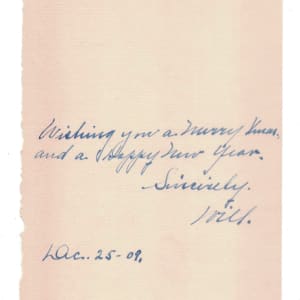 Wishing you a Merry Xmas.
and a Happy New Year.
Sincerely.
Will.
Dec. 25-09.